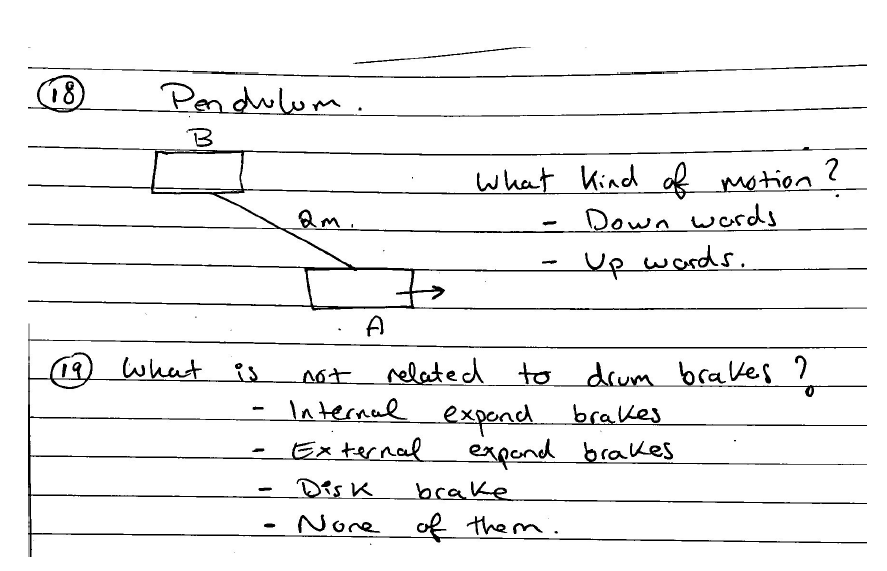 18 Pendulum.
B
What kind of motion?
2m.
- Down words
- Up words.
A
19 What is not related to drum brakes?
- Internal expand brakes
- External expand brakes
- Disk brake
- None of them.